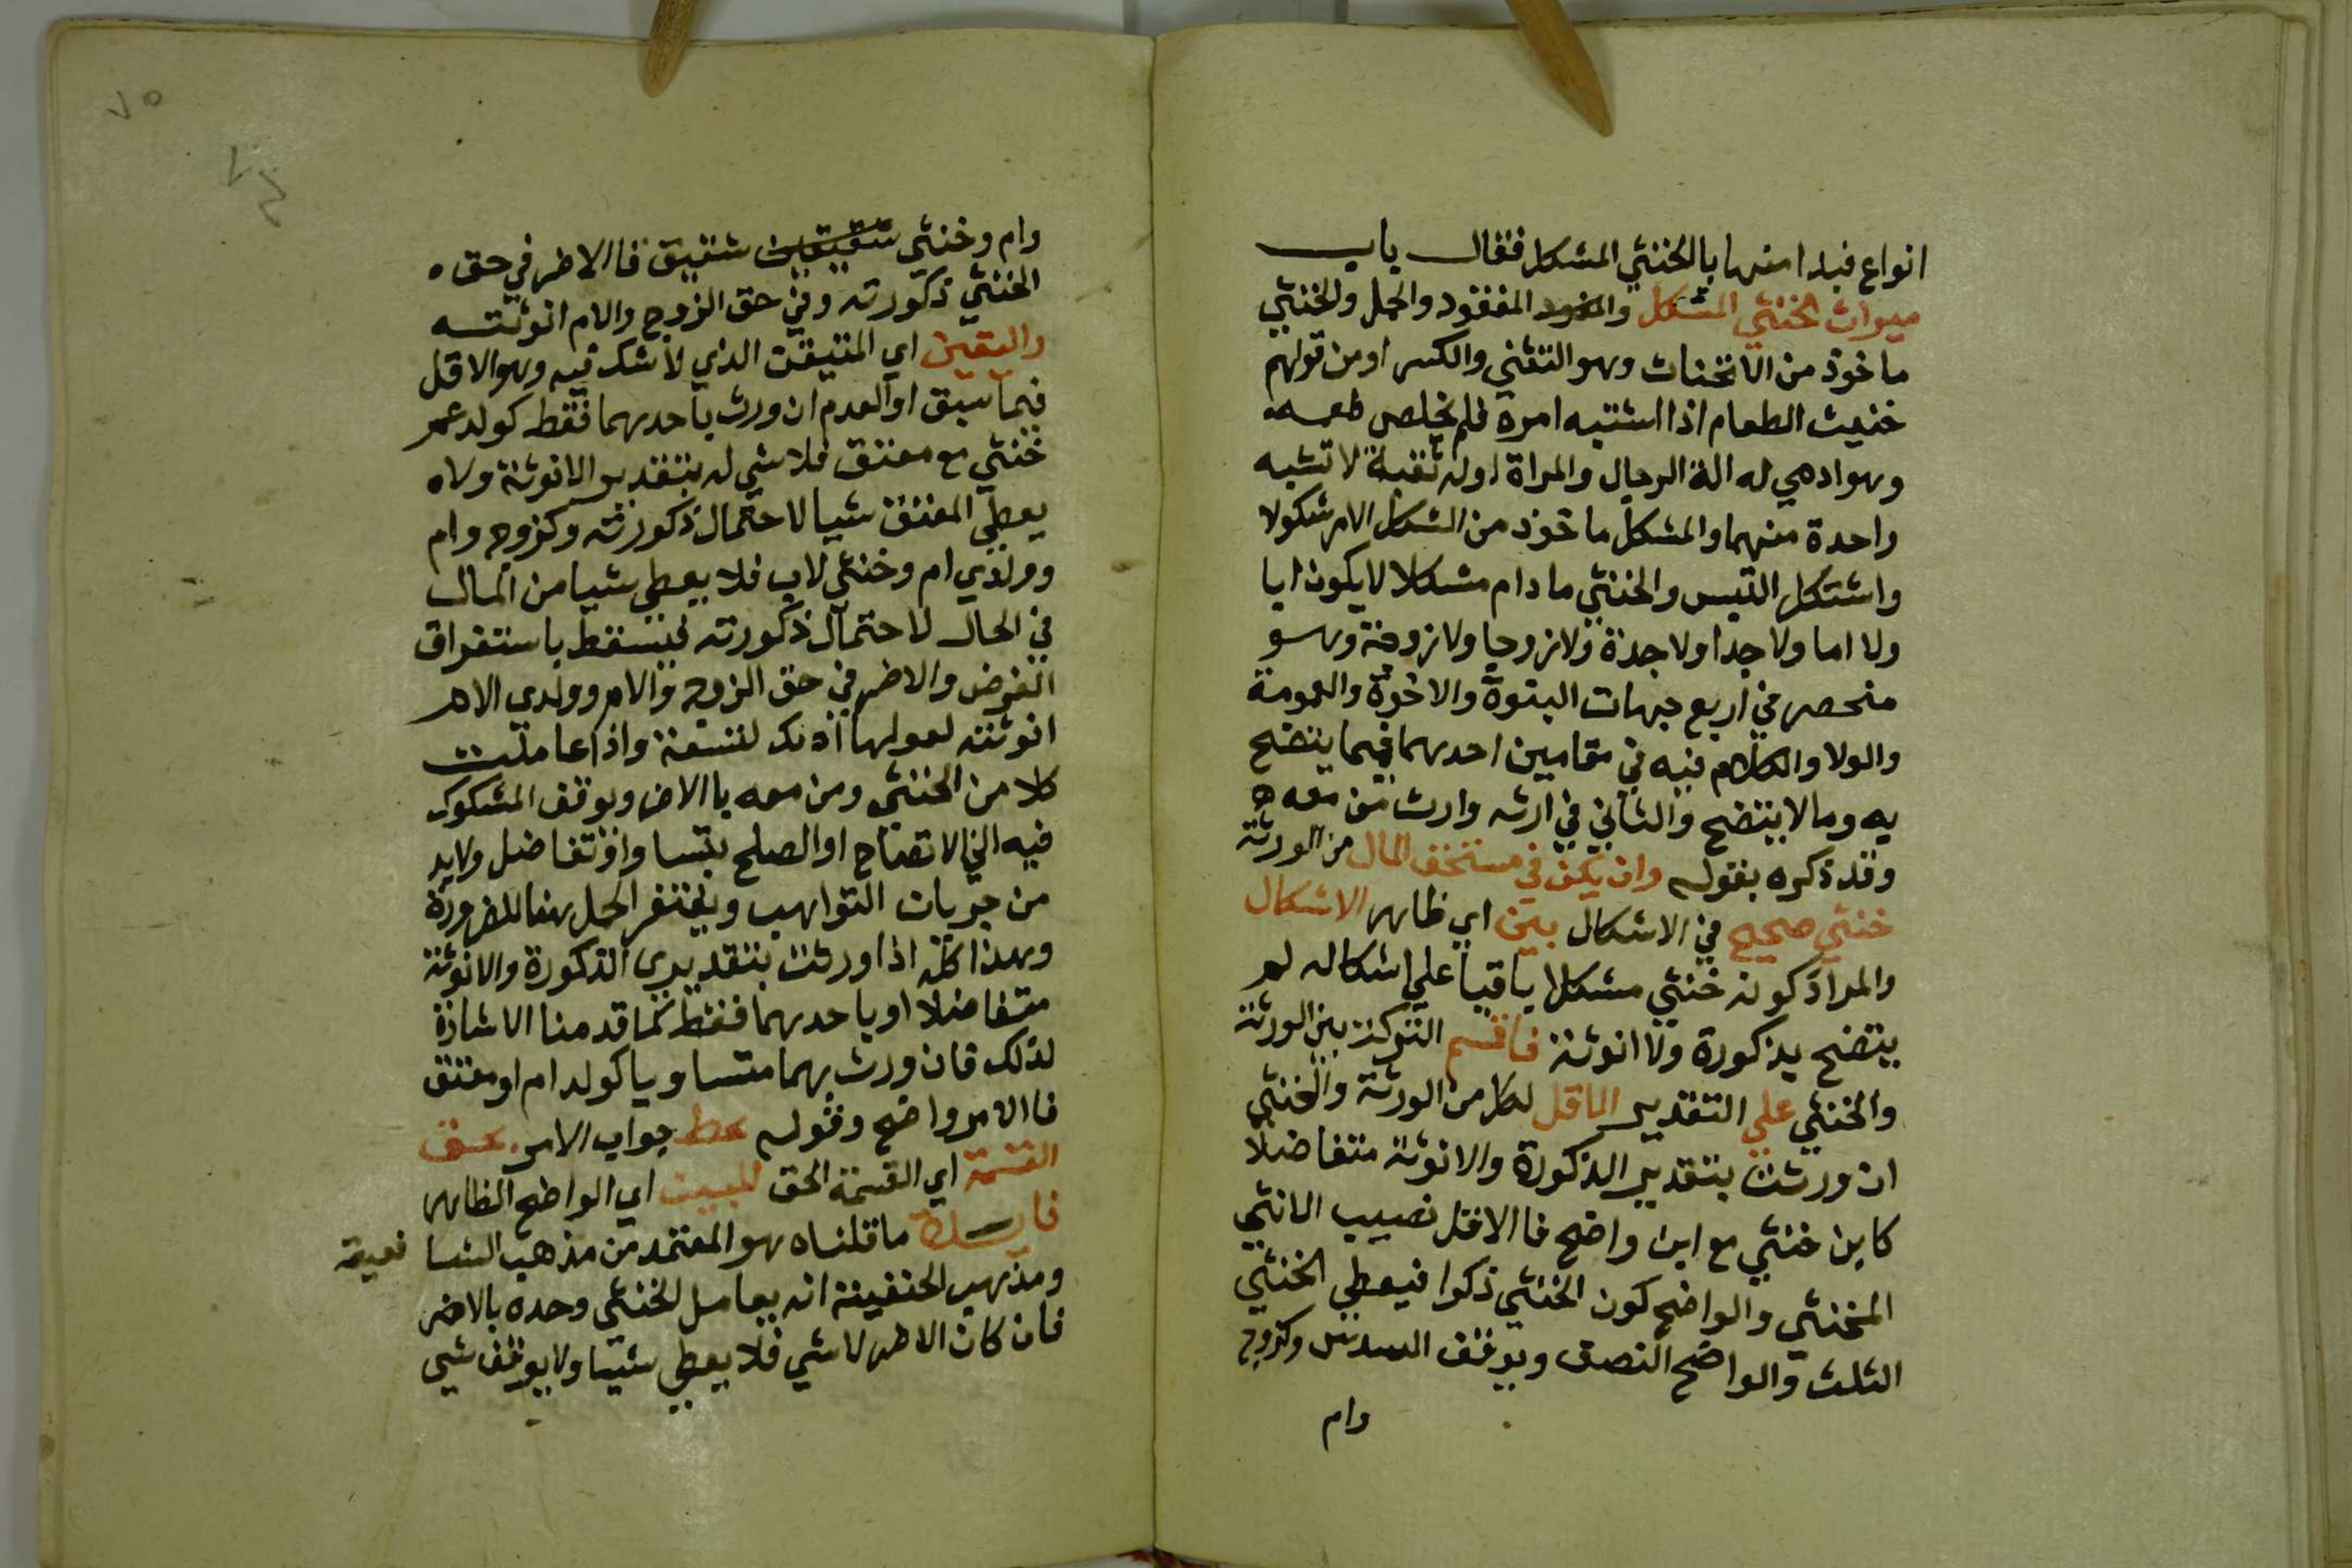 انواع فبدا منها بالخنثي المشكل فقال باب
ميراث الخنثي المشكل والمفقود المفقود والحمل والخنثي
ماخوذ من الانخناث وهو التثني والكسر اومن قولهم
خنث الطعام اذا اشتبه امره فلم يخلص طعمه
وهو ادمي له الة الرجال والمراة اوله ثقبة لا تشبه
واحدة منهما والمشكل ماخوذ من الشكل الامر شكولا
واشتكل التبس والخنثي مادام مشكلا لا يكون ابا
ولا اما ولا جدا ولا جدة ولا زوجا ولا زوجة وهو
منحصر في اربع جهات البنوة والاخوة والعمومة
والولا والكلام فيه في مقامين احدهما فيما يتضح
به وما لا يتضح والثاني في ارثه وارث من معه
وقد ذكره بقوله وان يكن في مستحق المال من الورثة
خنثي صحيح في الاشكال بين اي ظاهر الاشكال
والمراد كونه خنثي مشكلا باقيا علي اشكاله لم
يتضح بذكورة ولا انوثة فاقسم التركة بين الورثة
والخنثي علي التقدير الاقل لكل من الورثة والخنثي
ان ورثت بتقدير الذكورة والانوثة متفاضلا
كابن خنثي مع ابن واضح فاالاقل نصيب الانثي
للخنثي والواضح كون الخنثي ذكرا فيعطي الخنثي
الثلث والواضح النصف ويوقف السدس وكزوج
وام
٧٥
وام وخنثي شقيقين شقيق فاالاضر في حق
الخنثي ذكورته وفي حق الزوج والام انوثته
واليقين اي المتيقن الذي لا شك فيه وهو الاقل
فيما سبق اوالعدم ان ورث باحدهما فقط كولد عم
خنثي مع معتق فلا شي له بتقدير الانوثة ولا
يعطي المعتق شيا لاحتمال ذكورته وكزوج وام
وولدي ام وخنثي لاب فلا يعطي شيا من المال
في الحال لاحتمال ذكورته فيسقط باستغراق
الفرض والاضر في حق الزوج والام وولدي الام
انوثته لعولها اذ ذاك لتسعة واذا عاملت
كلا من الخنثي ومن معه باالاضر ويوقف المشكوك
فيه الي الاتضاح او الصلح بتساو او تفاضل ولابد
من جريان التواهب ويغتفر الجهل هنا للضرورة
وهذا كله اذا ورثت بتقديري الذكورة والانوثة
متفاضلا او باحدهما فقط كما قدمنا الاشارة
لذلك فان ورث بهما متساويا كولد ام او معتق
فاالامر واضح وقوله تحظ جواب الامر بحق
القسمة اي القسمة الحق المبين اي الواضح الظاهر
فايدة ما قلناه هو المعتمد من مذهب الشافعية
ومذهب الحنفية انه يعامل الخنثي وحده بالاضر
فان كان الاضر لا شي فلا يعطي شيا ولا يوقف شي